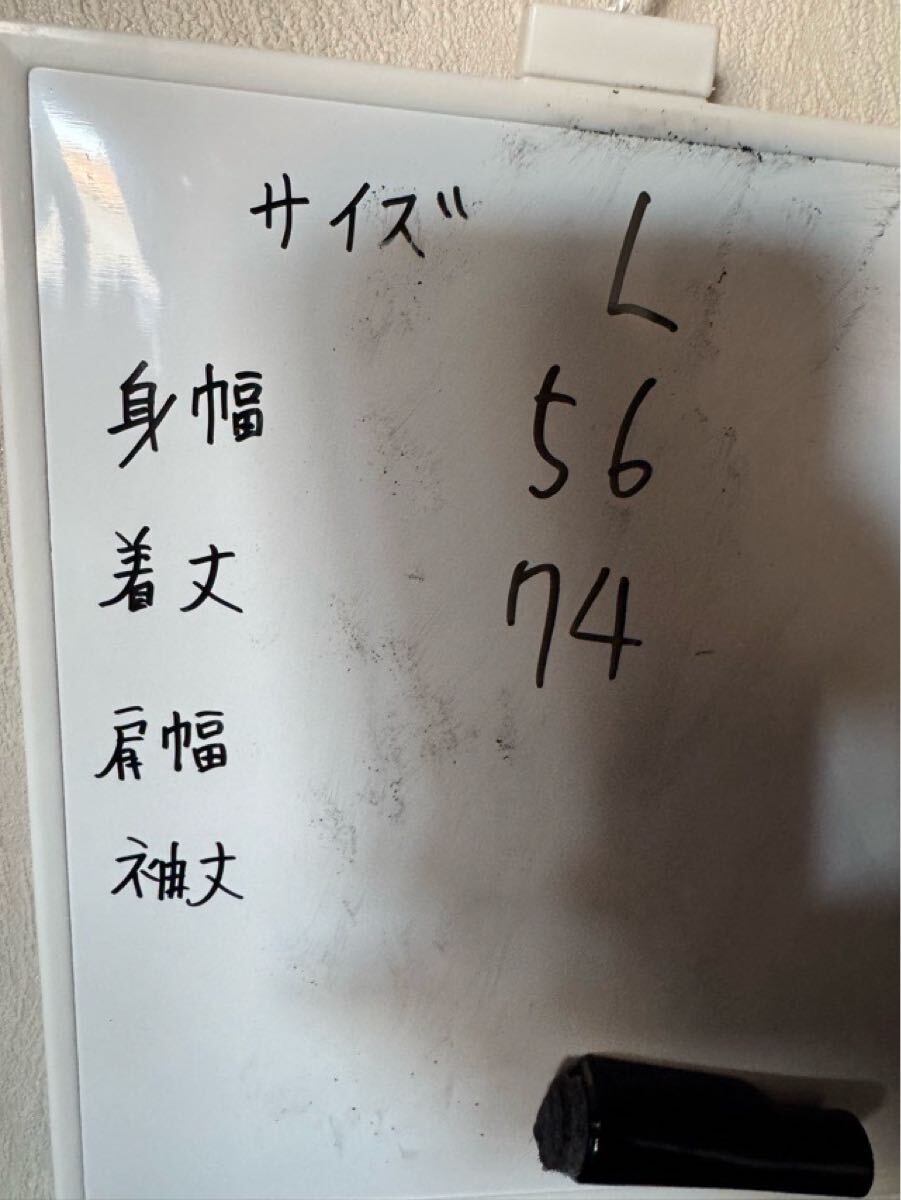 サイズ L
身幅 56
着丈 74
肩幅
袖丈